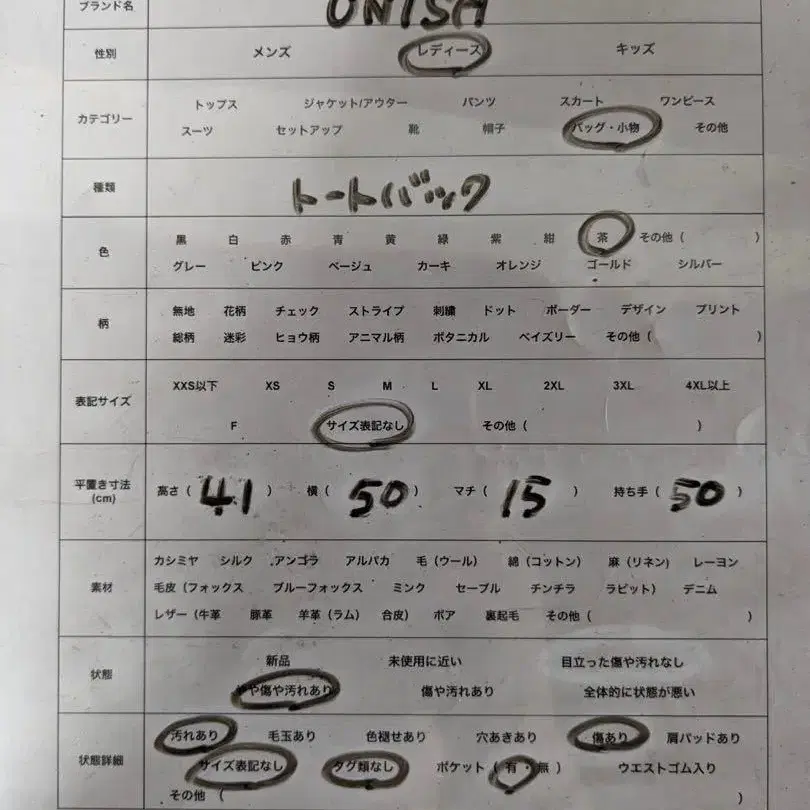 ブランド名 UNISA
性別 メンズ レディース キッズ
トップス ジャケット/アウター パンツ スカート ワンピース
カテゴリー
スーツ セットアップ 靴 帽子 バッグ・小物 その他
種類 トートバック
黒 白 赤 青 黄 緑 紫 紺 茶 その他 ( )
色
グレー ピンク ベージュ カーキ オレンジ ゴールド シルバー
無地 花柄 チェック ストライプ 刺繍 ドット ボーダー デザイン プリント
柄
総柄 迷彩 ヒョウ柄 アニマル柄 ボタニカル ペイズリー その他 ( )
XXS以下 XS S M L XL 2XL 3XL 4XL以上
表記サイズ
F サイズ表記なし その他 ( )
平置き寸法
(cm)
高さ ( 41 ) 横 ( 50 ) マチ ( 15 ) 持ち手 ( 50 )
カシミヤ シルク アンゴラ アルパカ 毛 (ウール) 綿 (コットン) 麻 (リネン) レーヨン
素材 毛皮 (フォックス ブルーフォックス ミンク セーブル チンチラ ラビット) デニム
レザー (牛革 豚革 羊革 (ラム) 合皮) ボア 裏起毛 その他 ( )
新品 未使用に近い 目立った傷や汚れなし
状態
やや傷や汚れあり 傷や汚れあり 全体的に状態が悪い
汚れあり 毛玉あり 色褪せあり 穴あきあり 傷あり 肩パッドあり
状態詳細 サイズ表記なし タグ類なし ポケット ( 有・無 ) ウエストゴム入り
その他 ( )